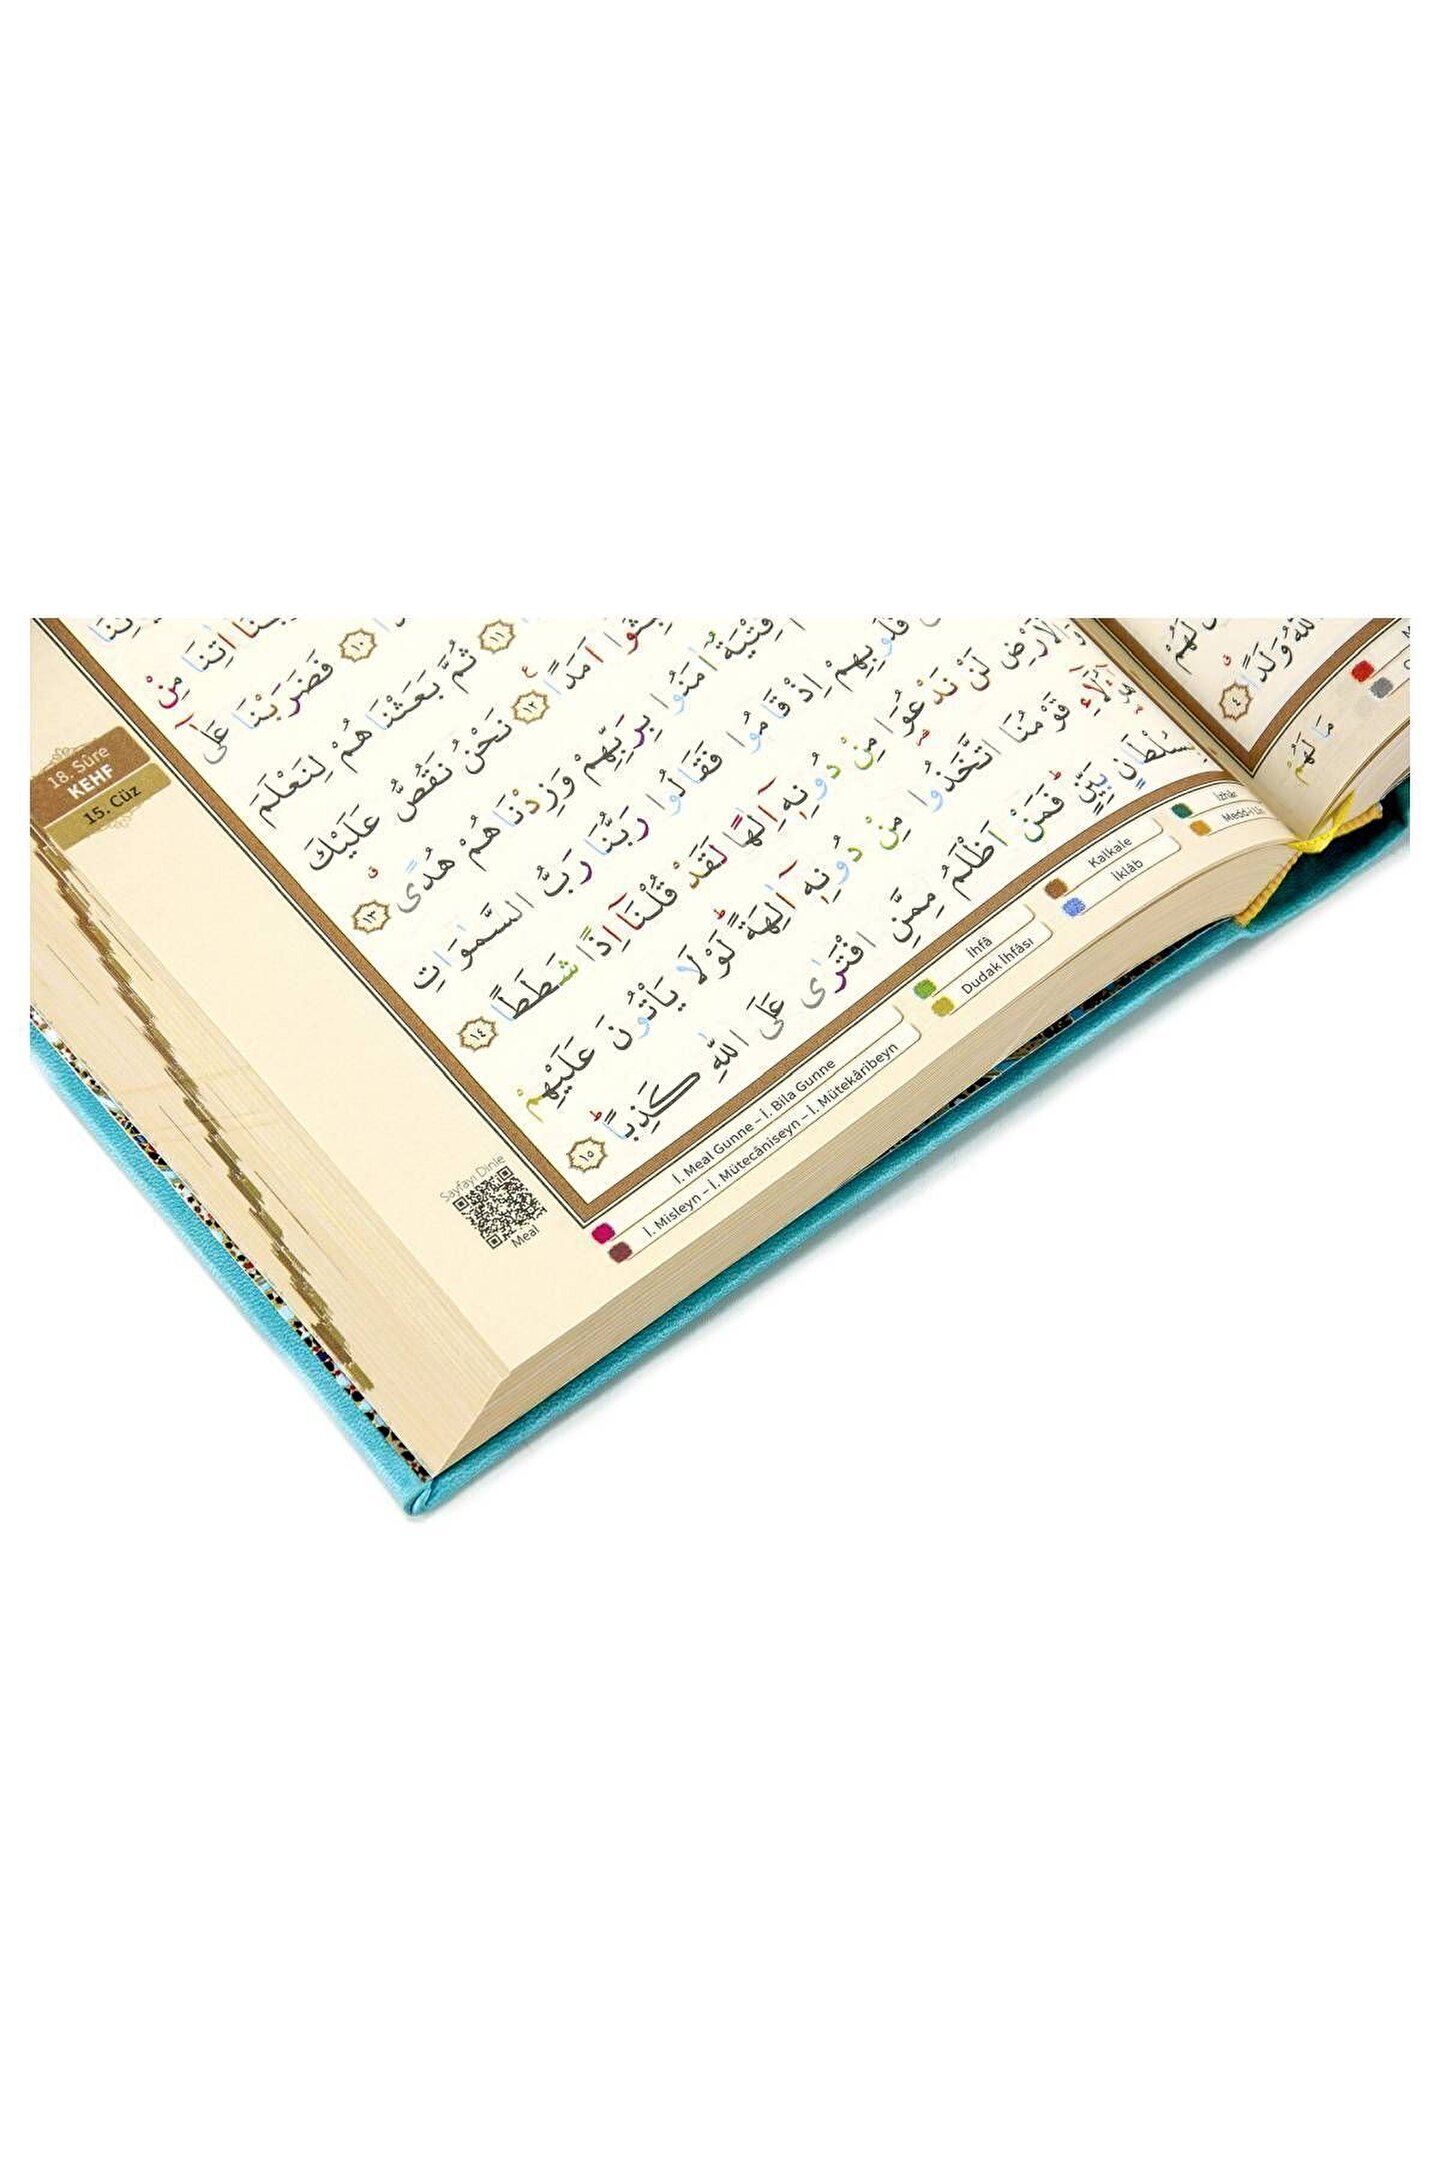 18. Sûre
KEHF
15. Cüz
اٰتِنَا مِنْ
﴿١٠﴾ فَضَرَبْنَا عَلٰٓى
﴿١١﴾ ثُمَّ بَعَثْنَاهُمْ لِنَعْلَمَ
اَمَدًا ﴿١٢﴾ نَحْنُ نَقُصُّ عَلَيْكَ
فِتْيَةٌ اٰمَنُوا بِرَبِّهِمْ وَزِدْنَاهُمْ هُدًى ﴿١٣﴾
قُلُوبِهِمْ اِذْ قَامُوا فَقَالُوا رَبُّنَا رَبُّ السَّمٰوَاتِ
وَالْاَرْضِ لَنْ نَدْعُوَا مِنْ دُونِهٖٓ اِلٰهًا لَقَدْ قُلْنَٓا اِذًا شَطَطًا ﴿١٤﴾
قَوْمُنَا اتَّخَذُوا مِنْ دُونِهٖٓ اٰلِهَةً لَوْلَا يَأْتُونَ عَلَيْهِمْ
بِسُلْطَانٍ بَيِّنٍ فَمَنْ اَظْلَمُ مِمَّنِ افْتَرٰى عَلَى اللّٰهِ كَذِبًا ﴿١٥﴾
Sayfayı Dinle
Meal
İ. Meal Gunne – İ. Bila Gunne
İ. Misleyn – İ. Mütecâniseyn – İ. Mütekâribeyn
İhfâ
Dudak İhfâsı
Kalkale
İklâb
İzhâr
وَلَدًا ﴿٤﴾
مَا لَهُمْ